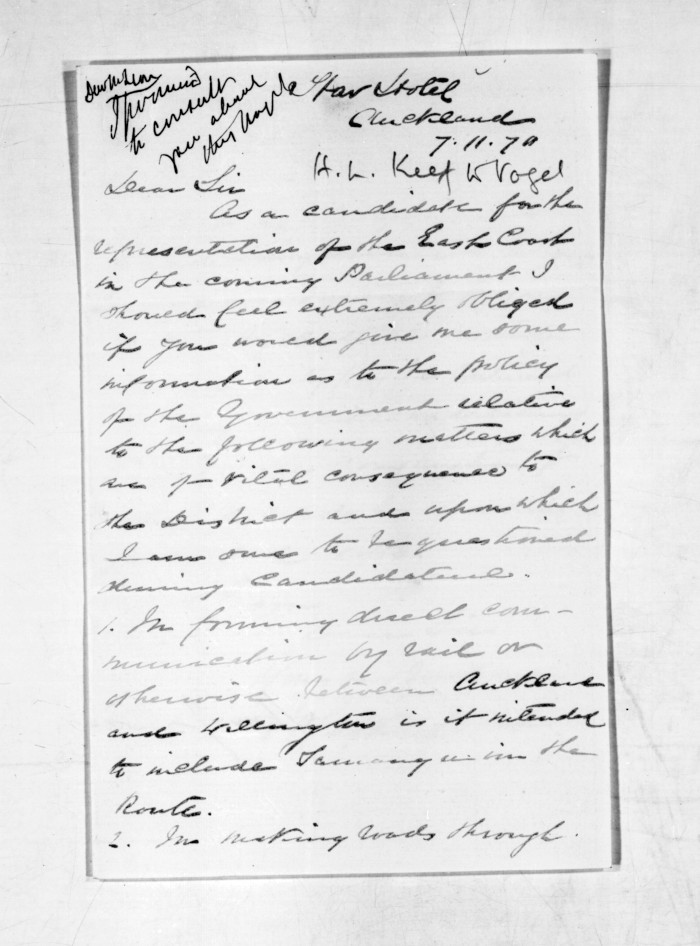 Dear McLean
I promised
to consult
you about
this Vogel
Star Hotel
Auckland
7.11.70
H. L. Keef to Vogel
Dear Sir
As a candidate for the
representation of the East Coast
in the coming Parliament I
should feel extremely obliged
if you would give me some
information as to the policy
of the Government relative
to the following matters which
are of vital consequence to
the District and upon which
I am sure to be questioned
during Candidature.
1. In forming direct com-
munication by rail or
otherwise between Auckland
and Wellington is it intended
to include Tauranga in the
Route.
2. In making roads through